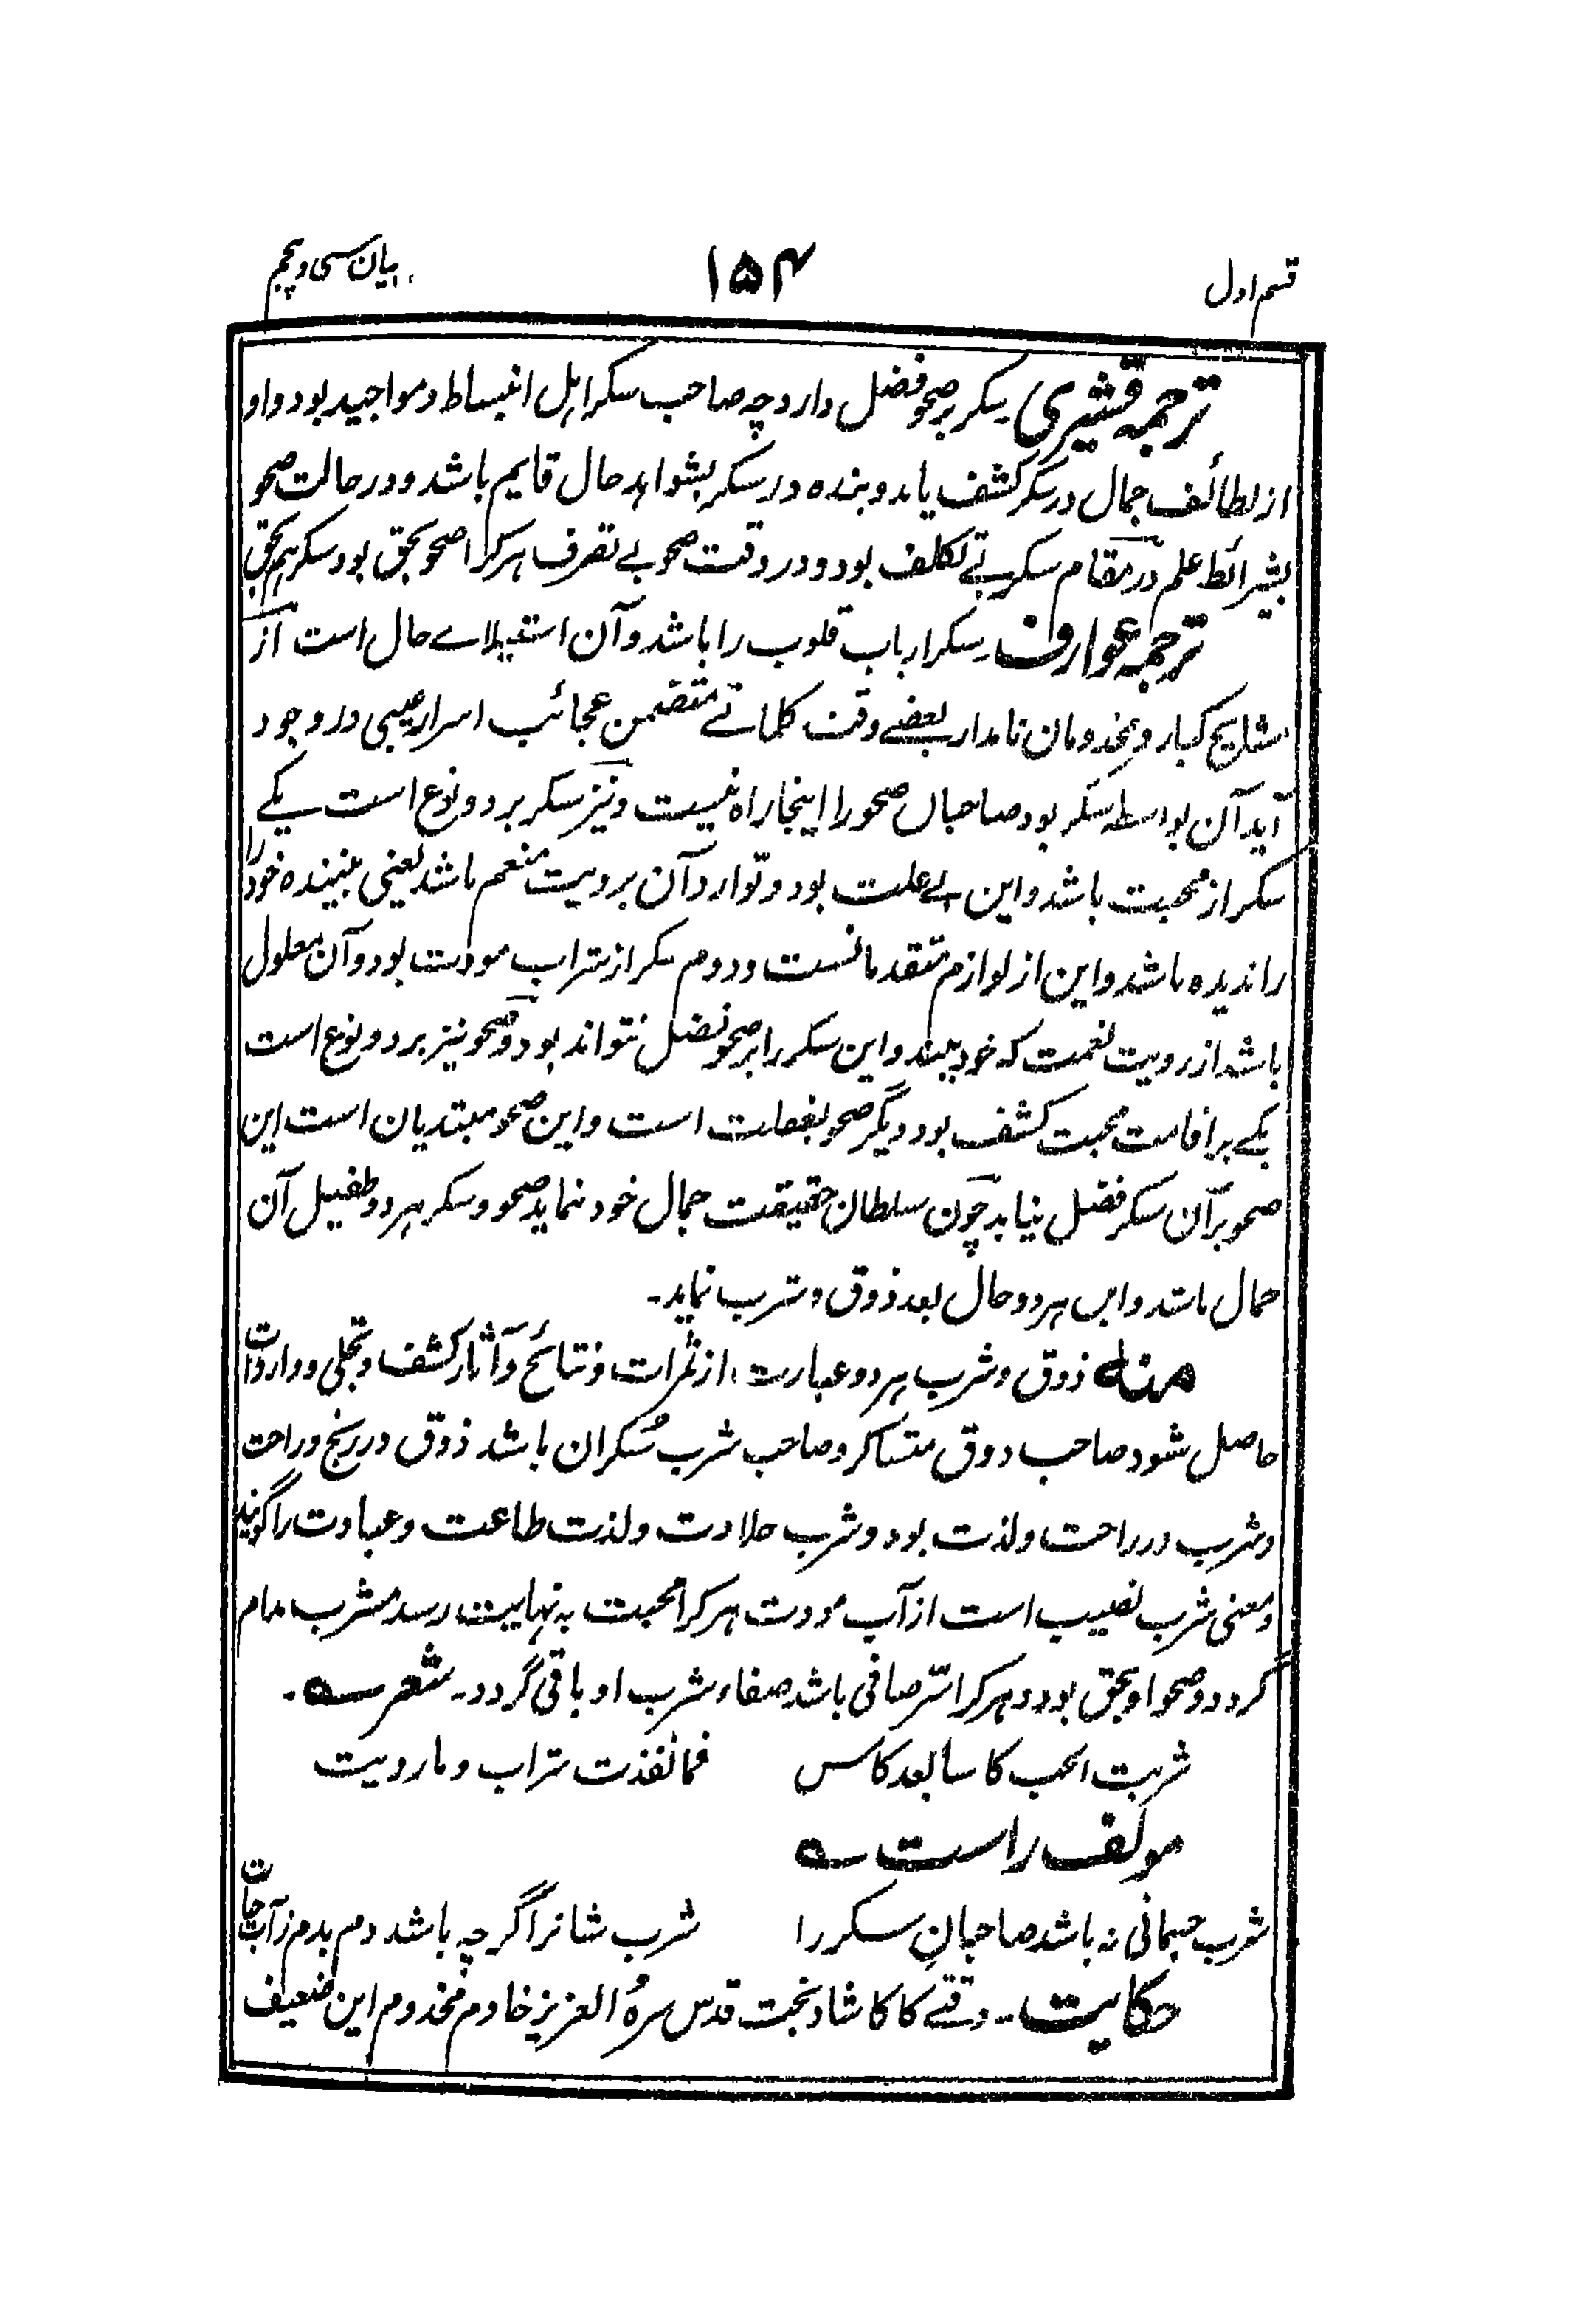 قسم اول
۱۵۴
بیان سی و پنجم
ترجمہ قشیری سکر بر صحو فضل دارد چہ صاحب سکر اہل انبساط و مواجید بود و او
از لطائف جمال در سکر کشف یابد و بندہ در سکر بشواہد حال قایم باشد و در حالت صحو
بشرائط علم در مقام سکر بے تکلف بود و در وقت صحو بے تصرف ہر کرا صحو بحق بود سکر ہم بحق
ترجمہ عوارف سکر ارباب قلوب را باشد و آن استیلاے حال است از
مشایخ کبار و مخدومان نامدار بعضے وقت کلماتے متضمن عجائب اسرار غیبی در وجود
آید آن بواسطہ سکر بود صاحبال صحو را اینجا راہ نیست و نیز سکر بر دو نوع است یکے
سکر از محبت باشد و این بے علت بود و توارد آن برویت منعم باشد یعنی بینندہ خود را
را ندیدہ باشد و این از لوازم متقدمانست و دوم سکر از شراب مودت بود و آن معلول
باشد از رویت نعمت کہ خود بیند و این سکر را بر صحو فضل نتواند بود و صحو نیز بر دو نوع است
یکے بر اقامت محبت کشف بود دیگر صحو بغفلت است و این صحو مبتدیان است این
صحو بر آن سکر فضل نیابد چون سلطان حقیقت جمال خود نماید صحو و سکر ہر دو طفیل آن
جمال باشد و این ہر دو حال بعد ذوق و شرب نماید۔
منہ ذوق و شرب ہر دو عبارت از ثمرات و نتائج و آثار کشف و تجلی و واردات
حاصل شود صاحب ذوق متساکر و صاحب شرب سُکران باشد ذوق در رنج و راحت
و شرب در راحت و لذت بود و شرب حلاوت و لذت طاعت و عبادت را گویند
و معنی شرب نصیب است از آب مودت ہر کرا محبت بہ نہایت رسد مشرب مدام
گردد و صحو او بحق بود و ہر کرا سّر صافی باشد صفاء شرب او باقی گردد۔ شعر ؎۔
شربت الحب کاسا بعد کاس فما نفذت شراب و مارویت
مولف راست ؎
شرب جسمانی نہ باشد صاحبانِ سکر را شرب شانرا گرچہ باشد دم بدم ز آب حیات
حکایت۔ وقتے کاکا شادبخت قدس سرہُ العزیز خادم مخدوم این ضعیف